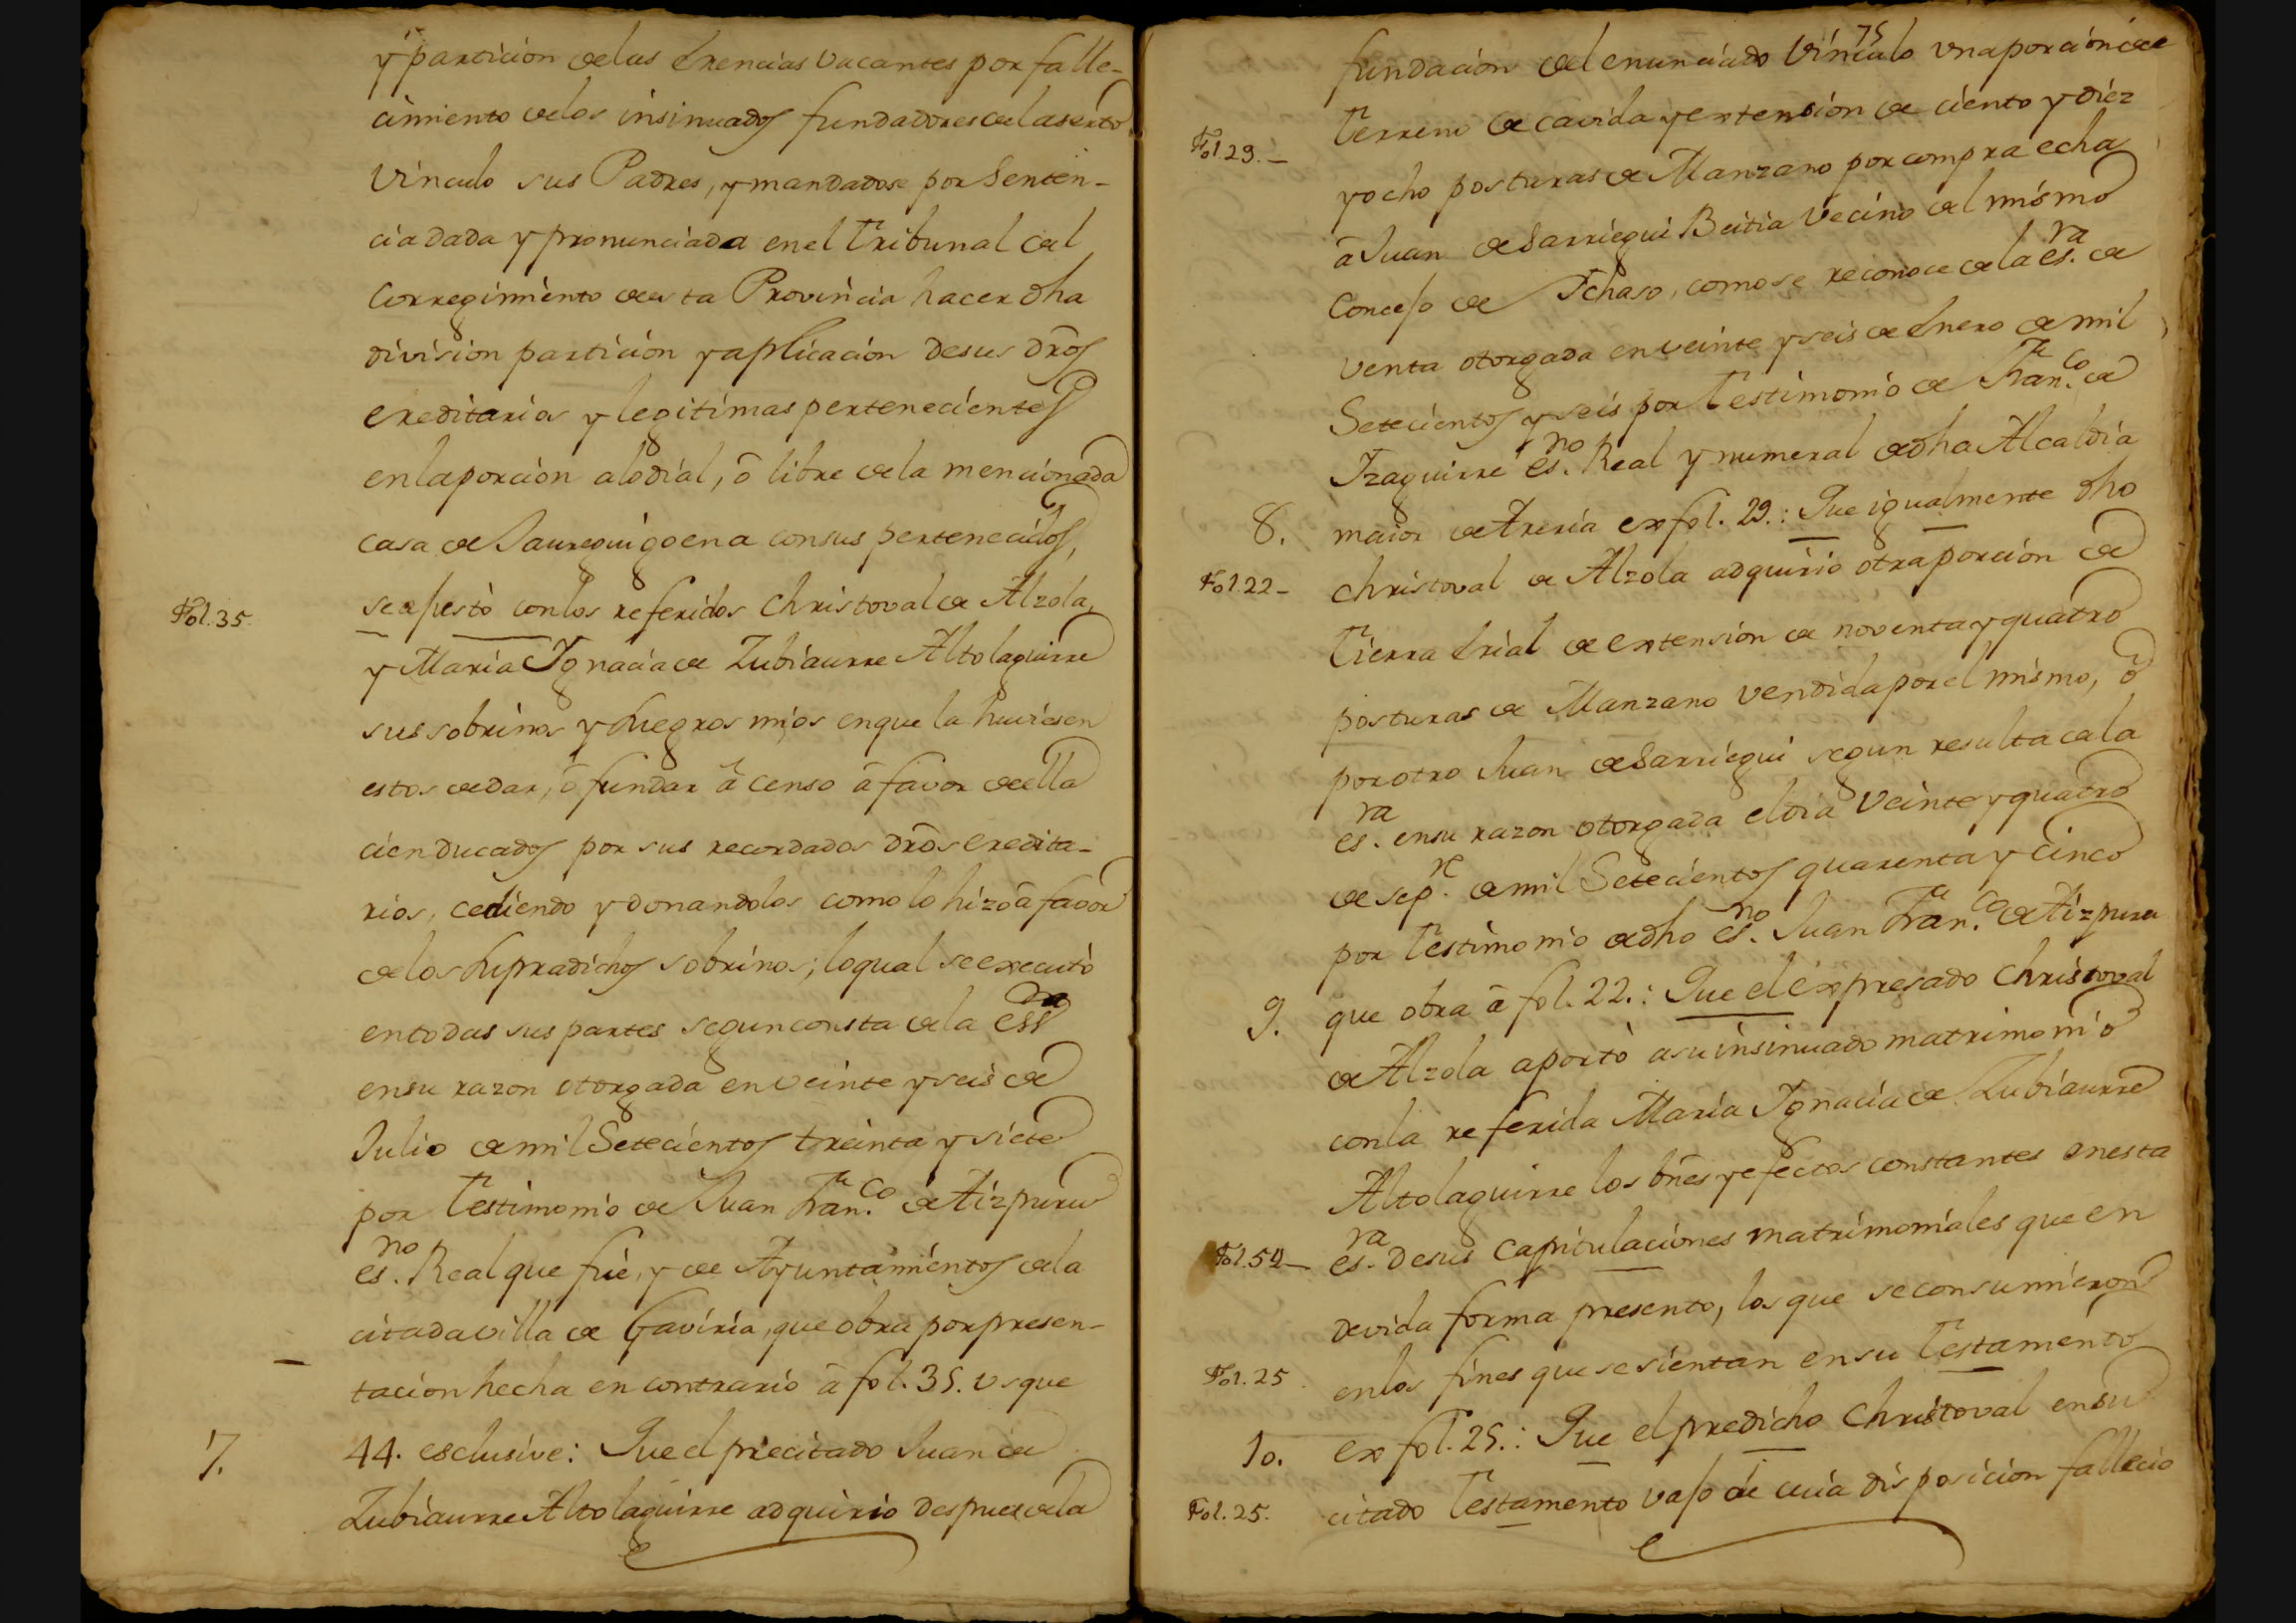 y particion de las Erencias vacantes por falle-
cimiento de los insinuados fundadores del aserto
Vinculo sus Padres, y mandadose por Senten-
cia dada y pronunciada en el Tribunal del
Corregimiento de esta Provincia hacer dha
division particion y aplicacion de sus dros
ereditarios y legitimas pertenecientes
en la porcion alodial, ô libre de la mencionada
casa de Jaureguigoena con sus pertenecidos,
Fol. 35.
se ajustò con los referidos Christoval de Alzola,
y Maria Ignacia de Zubiaurre Altolaguirre
sus sobrinos y Suegros mios en que la huviesen
estos de dar, ô fundar â censo â favor de ella
cien Ducados por sus recordados dros eredita-
rios, cediendo y donandolos como lo hizo â favor
de los supradichos sobrinos; lo qual se executò
en todas sus partes segun consta de la essra
en su razon otorgada en veinte y seis de
Julio de mil Setecientos treinta y siete
por Testimonio de Juan Fran.co de Aizpuru
es.no Real que fué, y de Ayuntamientos de la
citada villa de Gaviria, que obra por presen-
tacion hecha en contrario â fol. 35. usque
7.
44. esclusive: Que el precitado Juan de
Zubiaurre Altolaguirre adquirio despues de la
75
fundacion del enunciado Vinculo una porcion de
Terreno de cavida y extension de ciento y diez
Fol. 29.—
y ocho posturas de Manzano por compra echa
â Juan de Sarriegui Beitia vecino del mismo
Concejo de Ichaso, como se reconoce de la es.ra de
venta otorgada en veinte y seis de Enero de mil
Setecientos y seis por Testimonio de Fran.co de
Izaguirre es.no Real y numeral de dha Alcaldia
8.
maior de Areria ex fol. 29.: Que igualmente dho
Fol. 22—
Christoval de Alzola adquirio otra porcion de
Tierra Erial de extension de noventa y quatro
posturas de Manzano vendida por el mismo, ô
por otro Juan de Sarriegui segun resulta de la
es.ra en su razon otorgada el dia Veinte y quatro
de sep.re de mil Setecientos quarenta y cinco
por Testimonio de dho es.no Juan Fran.co de Aizpuru
9.
que obra â fol. 22.: Que el expresado Christoval
de Alzola aportò a su insinuado matrimonio
con la referida Maria Ignacia de Zubiaurre
Altolaguirre los bnes y efectos constantes en esta
Fol. 54—
es.ra de sus capitulaciones matrimoniales que en
devida forma presento, los que se consumieron
Fol. 25.
en los fines que se sientan en su Testamento
10.
ex fol. 25.: Que el predicho Christoval en su
Fol. 25.
citado Testamento vajo de cuia disposicion fallecio